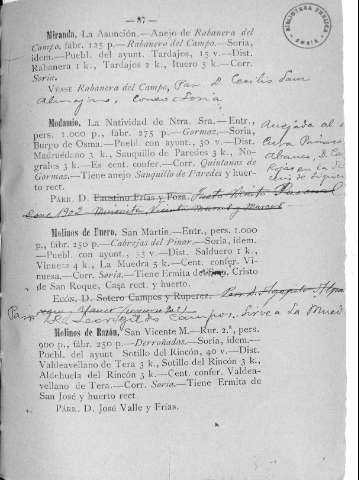 — 87 —
BIBLIOTECA PUBLICA
SORIA
Miranda, La Asunción.—Anejo de Rabanera del
Campo, fábr. 125 p.—Rabanera del Campo.—Soria,
idem.—Puebl. del ayunt. Tardajos, 15 v.—Dist.
Rabanera 1 k., Tardajos 2 k., Ituero 3 k.—Corr.
Soria.
VÉASE Rabanera del Campo, Par D. Cecilio San
Soria
Modamio, La Natividad de Ntra. Sra.—Entr.,
pers. 1.000 p., fábr. 275 p.—Gormaz.—Soria,
Burgo de Osma.—Puebl. con ayunt., 30 v.—Dist.
Madruédano 3 k., Sauquillo de Paredes 3 k., No-
grales 3 k.—Es cent. confer.—Corr. Quintanas de
Gormaz.—Tiene anejo Sauquillo de Paredes y huer-
to rect.
PÁRR. D. Faustino Frías y Poza. Justo Benito
1922 Vicente y Marcos
Molinos de Duero, San Martín.—Entr., pers. 1.000
p., fábr. 250 p.—Cabrejas del Pinar.—Soria, idem.
—Puebl. con ayunt., 53 v.—Dist. Salduero 1 k.,
Vinuesa 4 k., La Muedra 5 k.—Cent. confer. Vi-
nuesa.—Corr. Soria.—Tiene Ermita del Cristo
de San Roque, Casa rect. y huerto.
ECÓN. D. Sotero Campos y Ruperez. Par D.
Campos. sirve a La Mued
Molinos de Razón, San Vicente M.—Rur. 2.ª, pers.
900 p., fábr. 250 p.—Derroñadas.—Soria, idem.—
Puebl. del ayunt Sotillo del Rincón, 40 v.—Dist.
Valdeavellano de Tera 3 k., Sotillo del Rincón 3 k.,
Aldehuela del Rincón 3 k.—Cent. confer. Valdea-
vellano de Tera.—Corr. Soria.—Tiene Ermita de
San José y huerto rect.
PÁRR. D. José Valle y Frías.